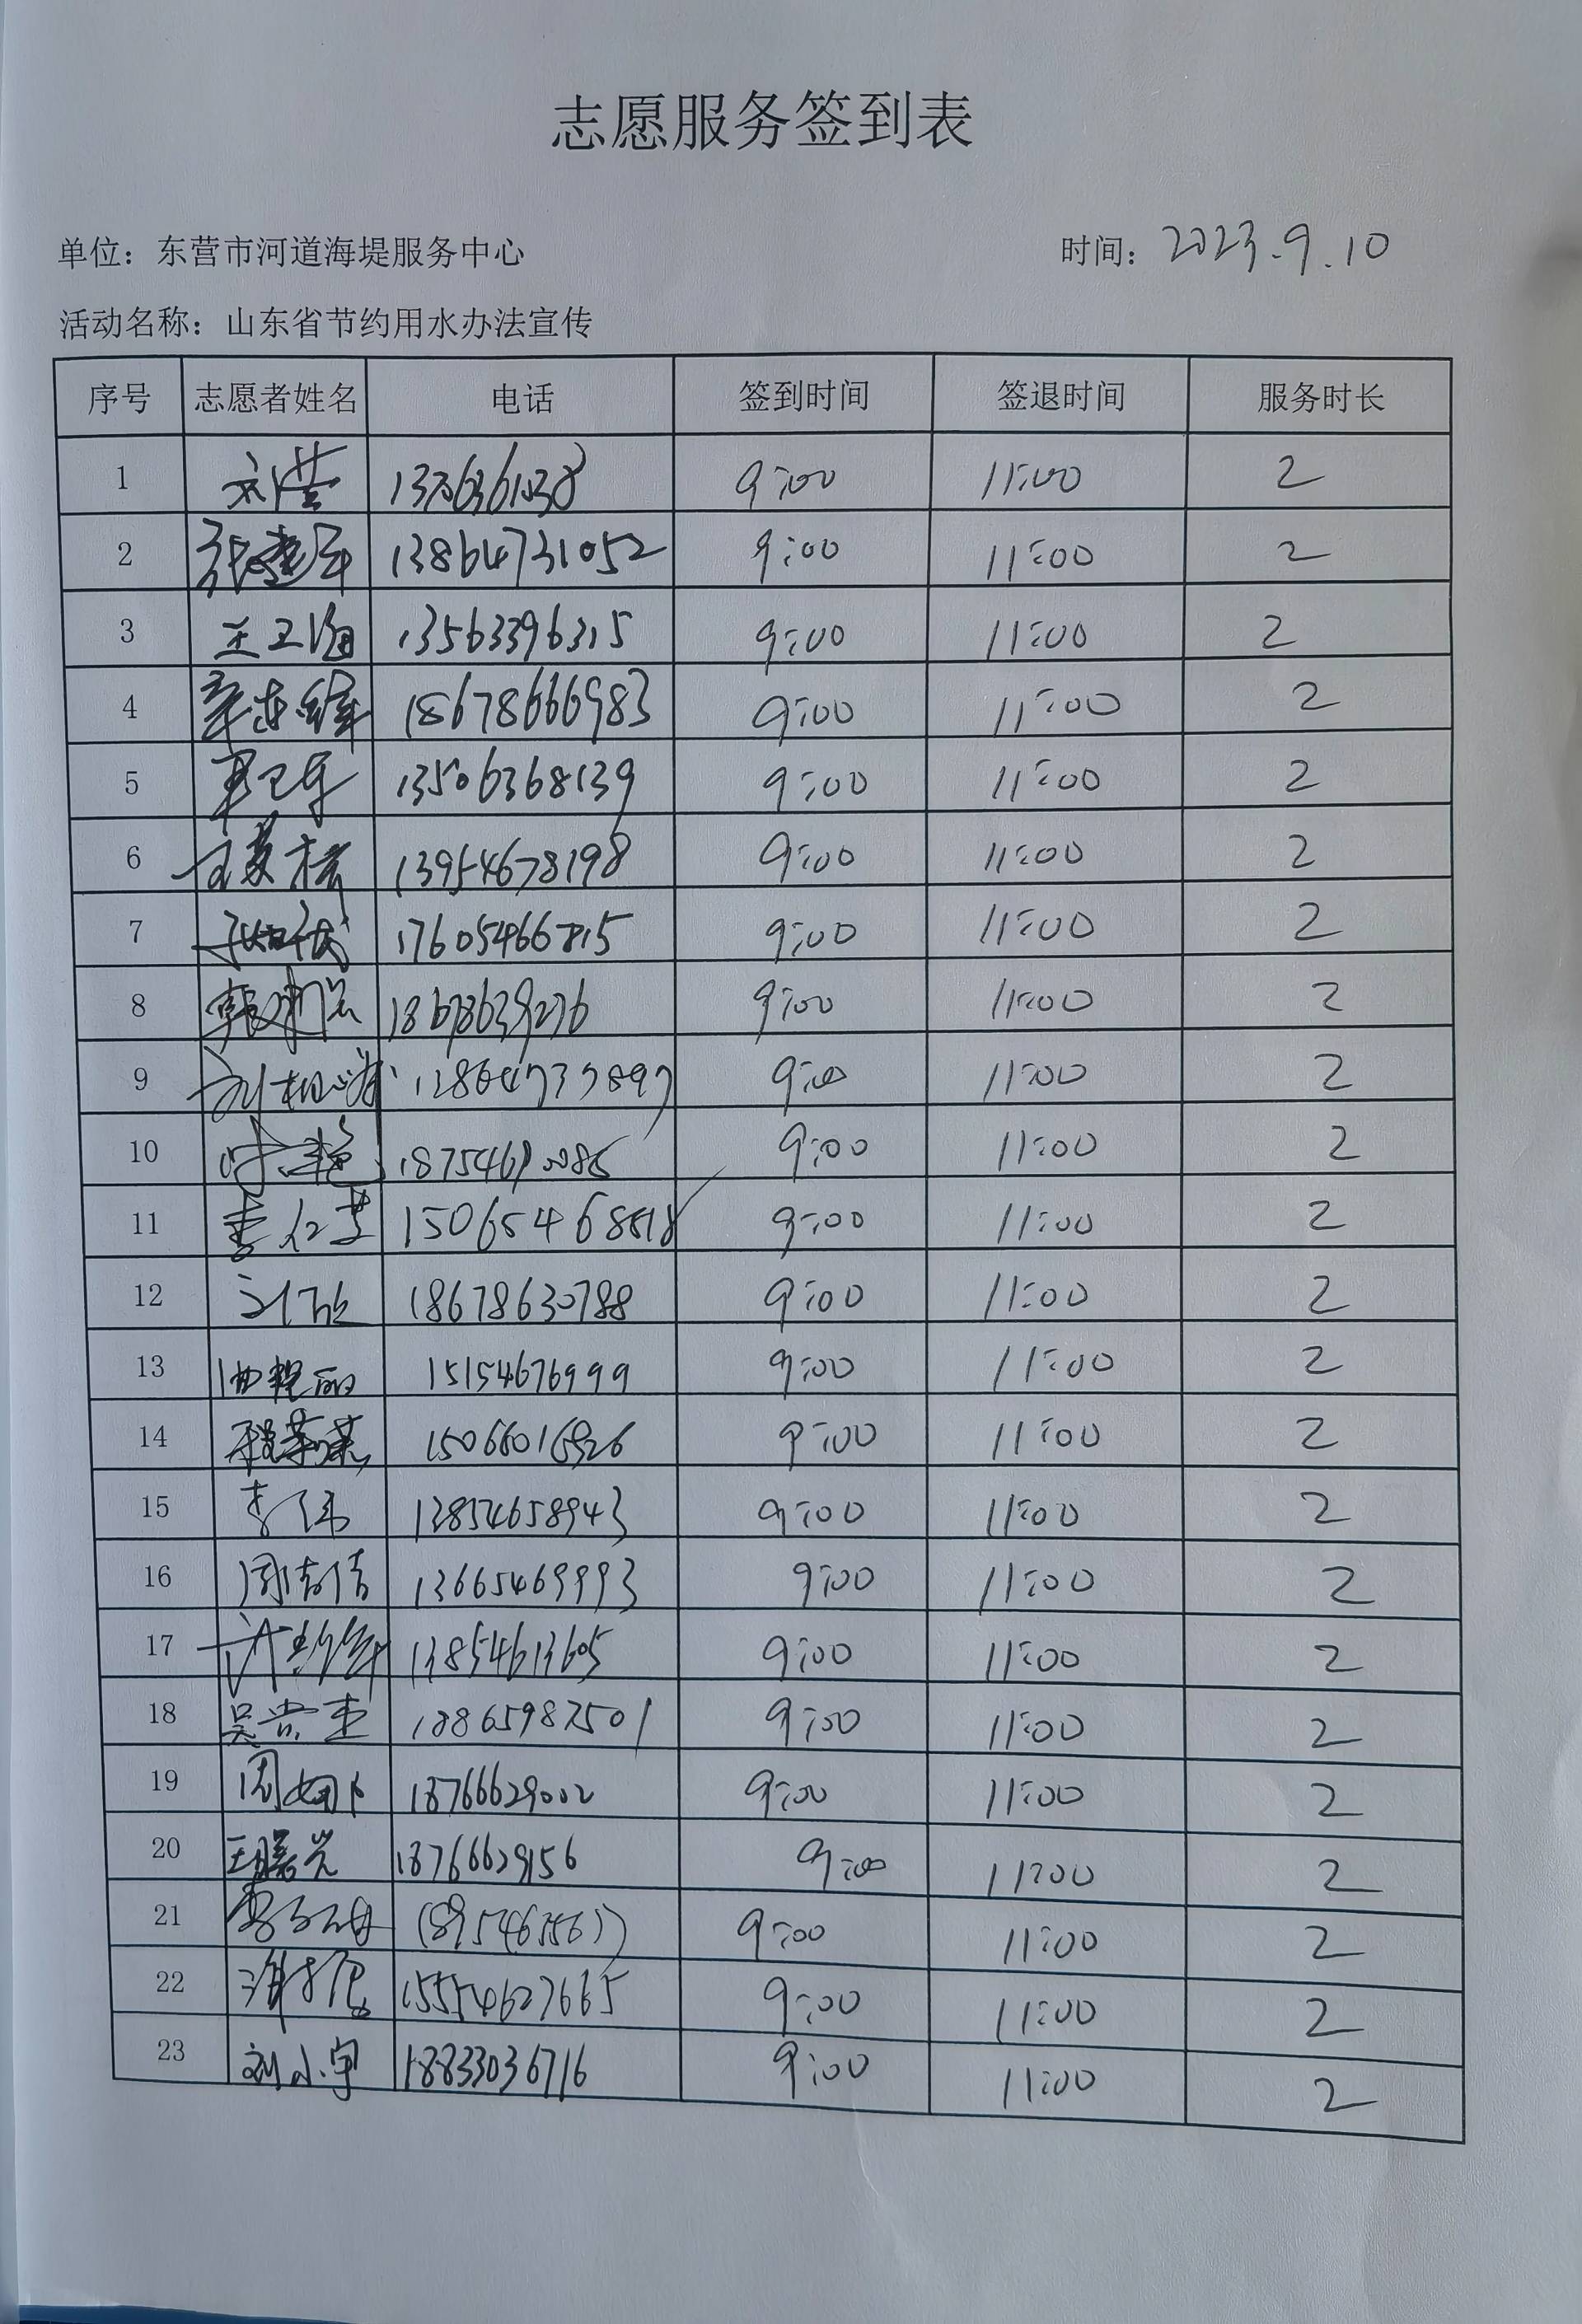 志愿服务签到表
单位：东营市河道海堤服务中心 时间：2023.9.10
活动名称：山东省节约用水办法宣传
序号 志愿者姓名 电话 签到时间 签退时间 服务时长
1 刘营 9:00 11:00 2
2 张建军 13864731052 9:00 11:00 2
3 王卫海 13563396315 9:00 11:00 2
4 18678666983 9:00 11:00 2
5 13506368139 9:00 11:00 2
6 13954678198 9:00 11:00 2
7 17605466815 9:00 11:00 2
8 18678639276 9:00 11:00 2
9 9:00 11:00 2
10 9:00 11:00 2
11 李红芝 15065468818 9:00 11:00 2
12 18678630788 9:00 11:00 2
13 15154676999 9:00 11:00 2
14 9:00 11:00 2
15 李伟 13854658943 9:00 11:00 2
16 13665469993 9:00 11:00 2
17 13854613605 9:00 11:00 2
18 9:00 11:00 2
19 18766629002 9:00 11:00 2
20 王曙光 18766629156 9:00 11:00 2
21 9:00 11:00 2
22 15554627665 9:00 11:00 2
23 刘小宇 18833036716 9:00 11:00 2